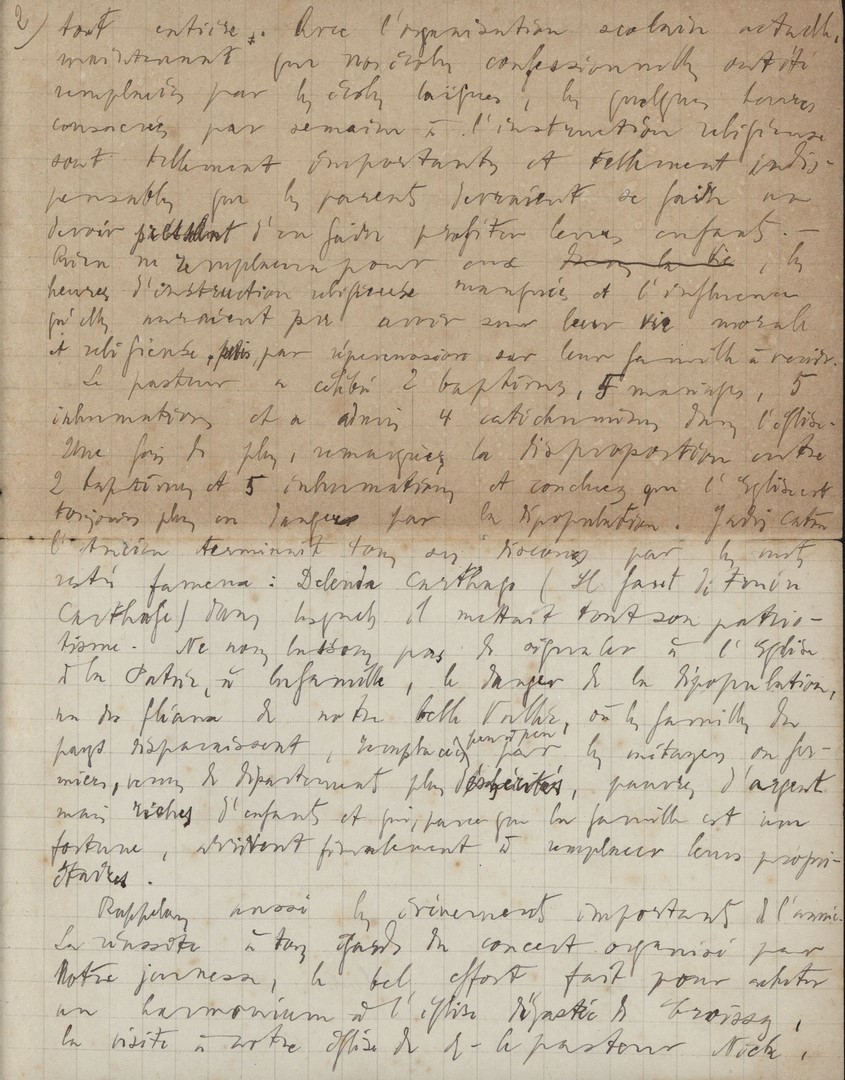 2) tout entière. Avec l'organisation scolaire actuelle,
maintenant que nos écoles confessionnelles ont été
remplacées par les écoles laïques, les quelques heures
consacrées par semaine à l'instruction religieuse
sont tellement importantes et tellement indis-
pensables que les parents devraient se faire un
devoir d'en faire profiter leurs enfants. —
Rien ne remplacera pour eux dans la vie, les
heures d'instruction religieuse manquées et l'influence
qu'elles auraient pu avoir sur leur vie morale
et religieuse, puis, par répercussion sur leur famille à venir.
Le pasteur a célébré 2 baptêmes, 5 mariages, 5
inhumations et a admis 4 catéchumènes dans l'église.
Une fois de plus, remarquez la disproportion entre
2 baptêmes et 5 inhumations et concluez que l'Eglise est
toujours plus en danger par la dépopulation. Jadis Caton
l'Ancien terminait tous ses discours par les mots
restés fameux : Delenda Carthago (Il faut détruire
Carthage) dans lesquels il mettait tout son patrio-
tisme. Ne nous lassons pas de signaler à l'Eglise
à la Patrie, à la famille, le danger de la dépopulation,
un des fléaux de notre belle Vallée, où les familles du
pays disparaissent, remplacées peu à peu par les métayers ou fer-
miers, venus de départements plus déshérités, pauvres d'argent
mais riches d'enfants et qui, parce que la famille est une
fortune, arrivent finalement à remplacer leurs propri-
étaires.
Rappelons aussi les évènements importants de l'année.
La réussite à tous égards du concert organisé par
Notre jeunesse, le bel effort fait pour acheter
un harmonium à l'église de
la visite à notre Eglise de le pasteur